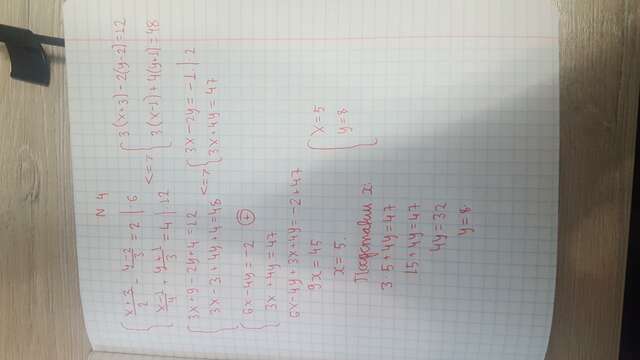 N 4
{ (x+3)/2 - (y-2)/3 = 2 | 6
{ (x-1)/4 + (y+1)/3 = 4 | 12
<=> { 3(x+3) - 2(y-2) = 12
{ 3(x-1) + 4(y+1) = 48
{ 3x+9-2y+4=12
{ 3x-3+4y+4=48
<=> { 3x-2y=-1 | 2
{ 3x+4y=47
{ 6x-4y=-2
{ 3x+4y=47 (+)
6x-4y+3x+4y=-2+47
9x=45
x=5
Подставим x
3 5+4y=47
15+4y=47
4y=32
y=8
{ x=5
{ y=8